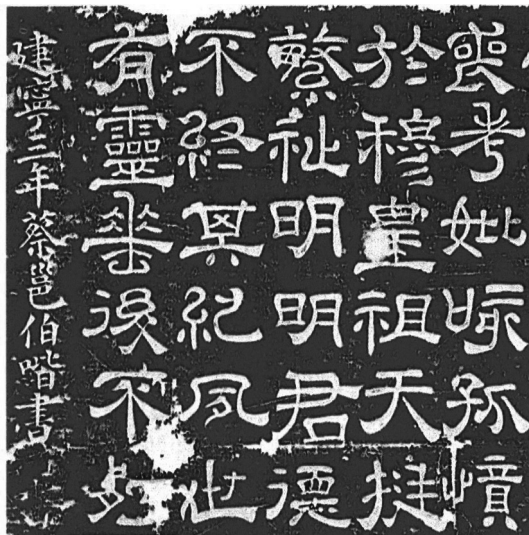 喪考妣咏孤憤
於穆皇祖天挺
繁祉明明君德
不終其紀夙世
有靈垂後不朽
建寧三年蔡邕伯喈書